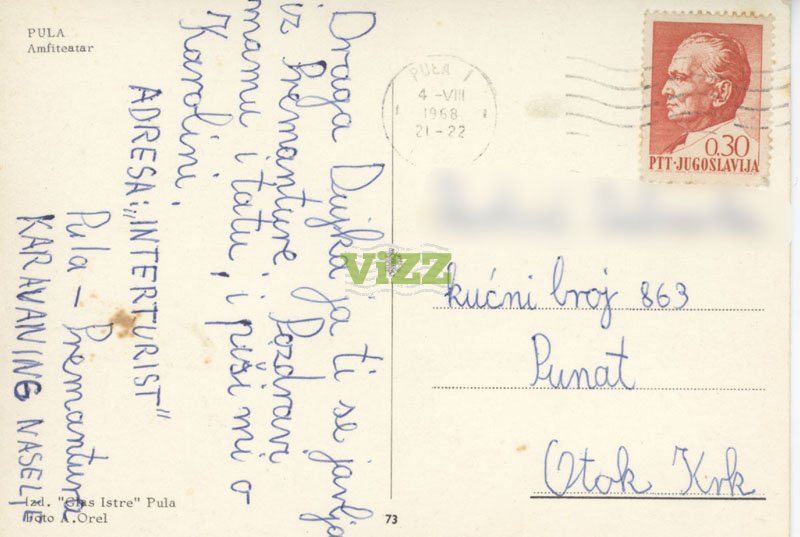 PULA
Amfiteatar
Draga Dujka ja ti se javlja
iz Premanture. Pozdravi
mamu i tatu, i piši mi o
Karolini.
ADRESA: „INTERTURIST"
Pula – Premantura
KARAVANING NASELJE
Izd. "Glas Istre" Pula
Foto A. Orel
73
PULA 1
4 -VIII
1968
21-22
0,30
PTT·JUGOSLAVIJA
ViZZ
kućni broj 863
Punat
Otok Krk